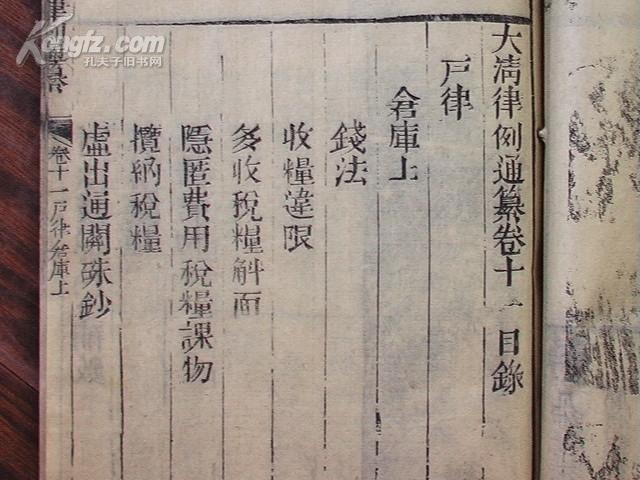 大清律例通纂卷十一目錄
戸律
倉庫上
錢法
收糧違限
多收稅糧斛面
隱匿費用稅糧課物
攬納稅糧
虛出通關硃鈔
卷十一戸律倉庫上
Kongfz.com
孔夫子旧书网